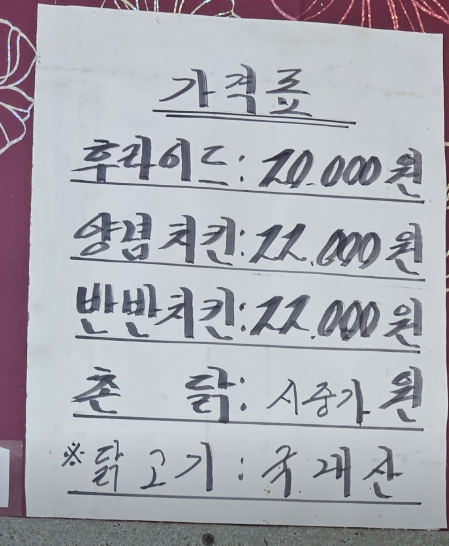 가격표
후라이드: 20.000원
양념치킨: 22.000원
반반치킨: 22.000원
촌 닭: 시중가 원
※닭고기: 국.내산